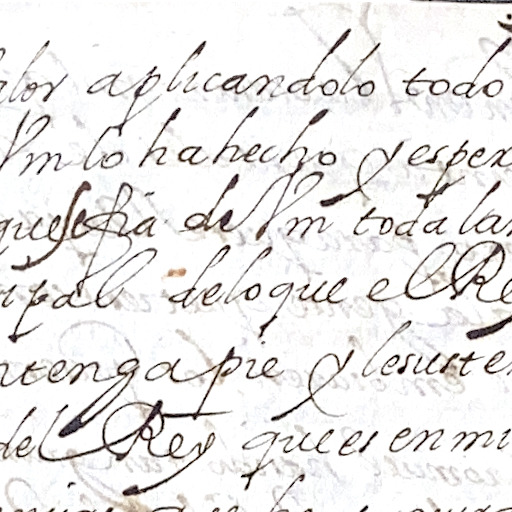 alor aplicandolo todo
Vm lo ha hecho y esper
que se fia de Vm toda la
ipal de lo que el Re
ntenga pie y le susten
del Rey que es en mi